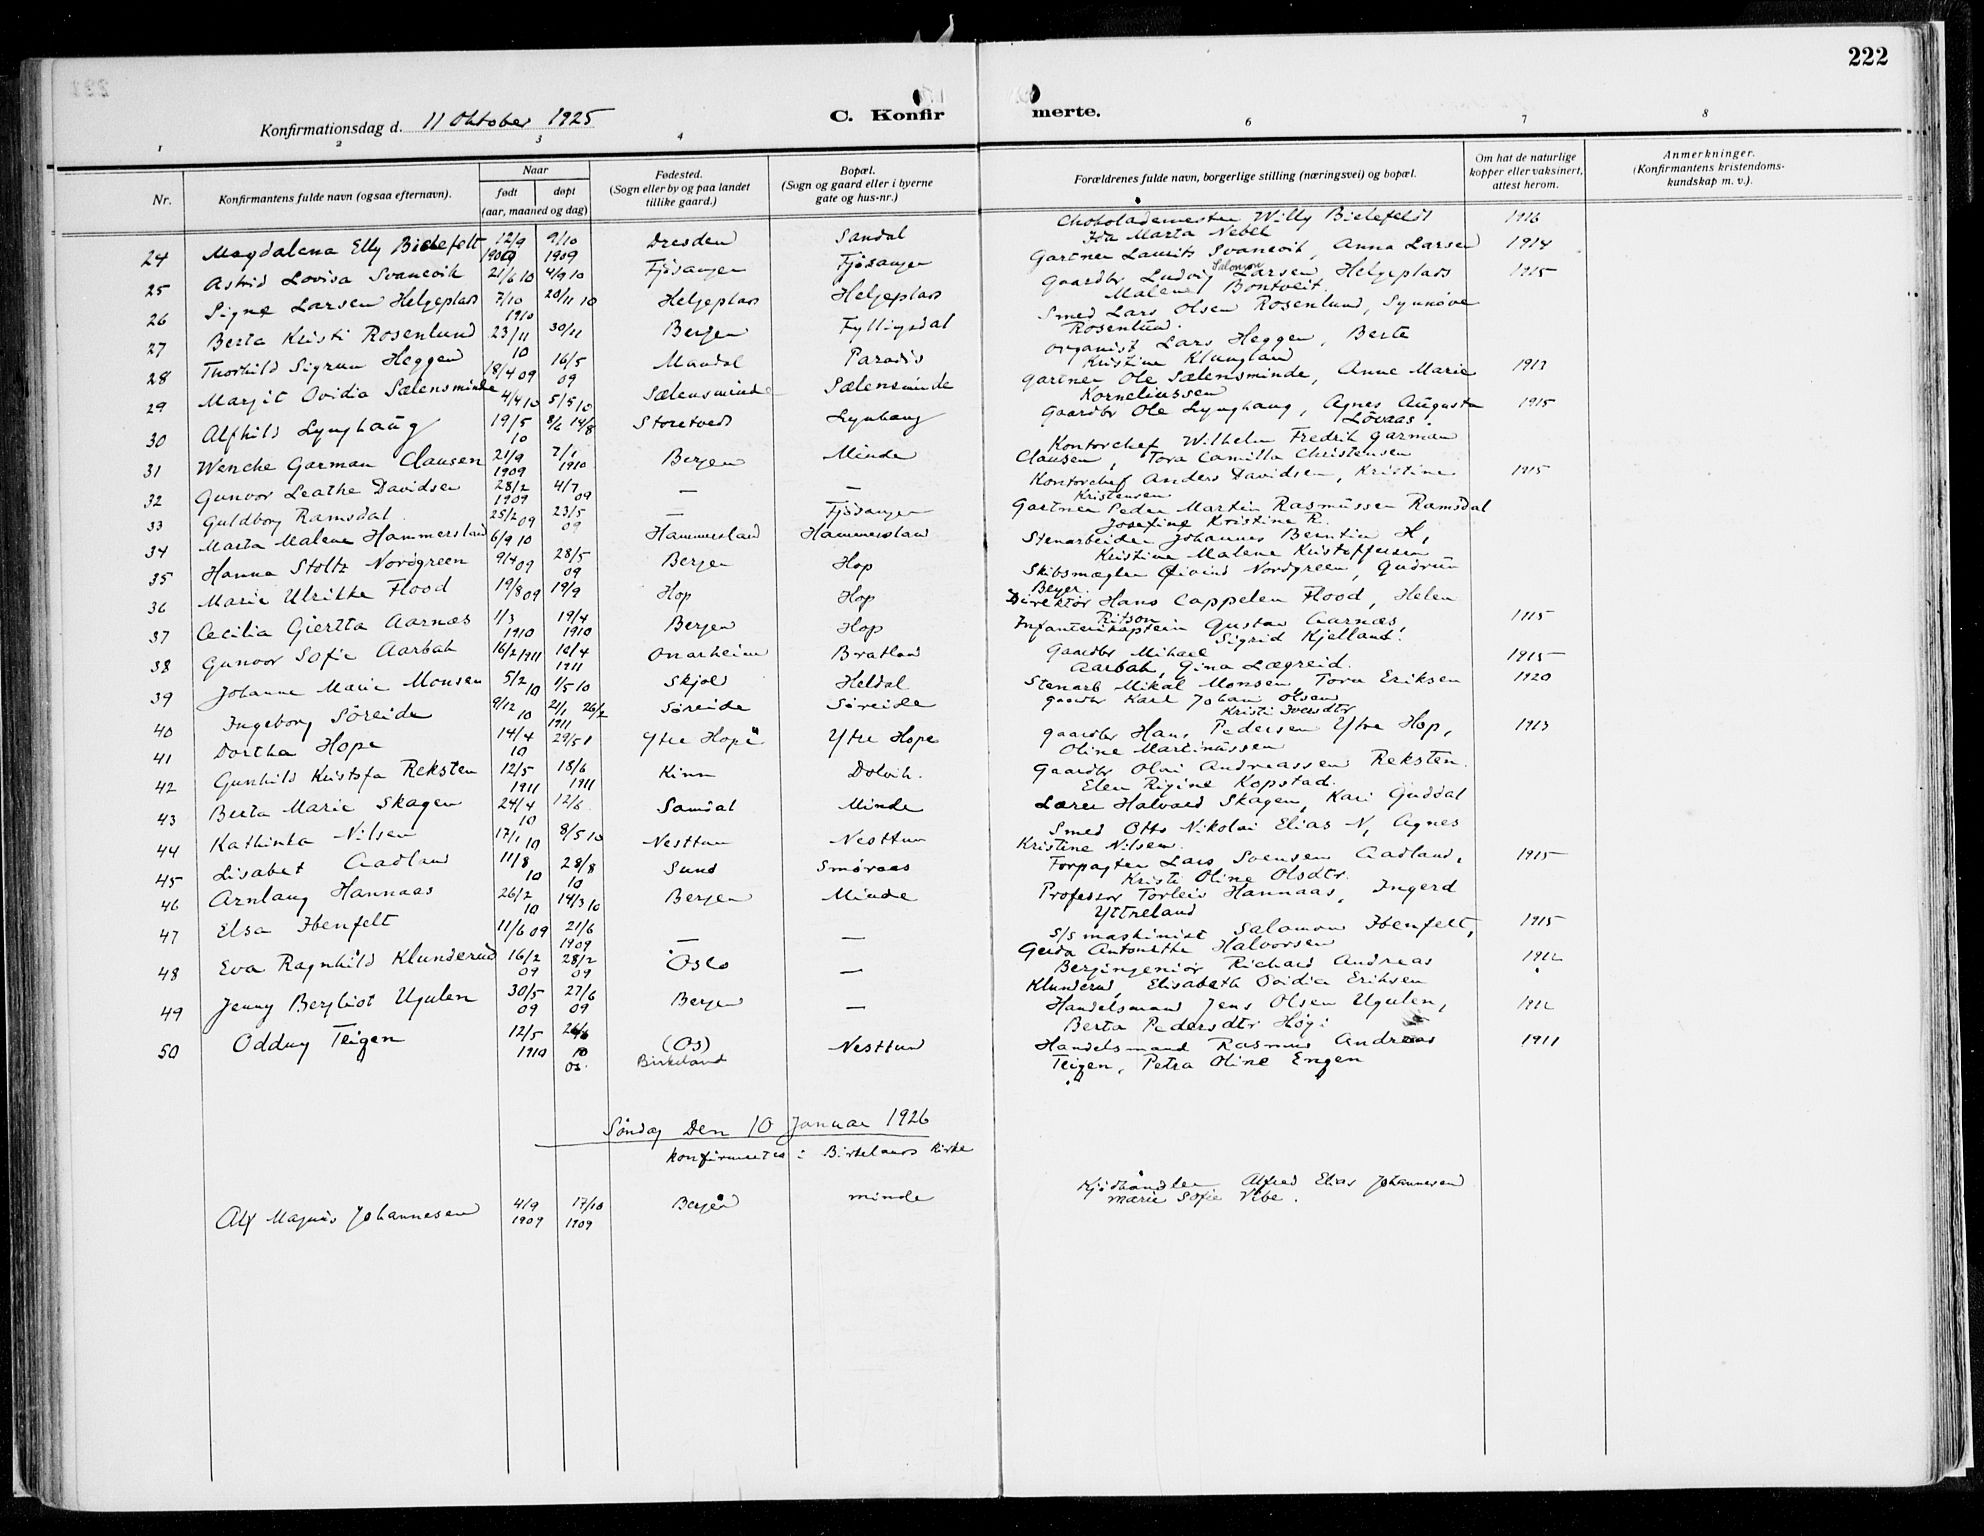 222
Konfirmationsdag d. 11 Oktober 1925
C. Konfirmerte.
1 2 3 4 6 7 8
Nr.
Konfirmantens fulde navn (ogsaa efternavn).
Naar
født
døpt
(aar, maaned og dag)
Fødested.
(Sogn eller by og paa landet
tillike gaard.)
Bopæl.
(Sogn og gaard eller i byerne
gate og hus-nr.)
Forældrenes fulde navn, borgerlige stilling (næringsvei) og bopæl.
Om hat de naturlige
kopper eller vaksinert,
attest herom.
Anmerkninger.
(Konfirmantens kristendoms-
kundskap m. v.).
24 Magdalena Elly Bielefelt 12/9 1909 9/10 1909 Dresden Sandal Chokolademester Willy Bielefeldt 1916
Ida Marta Nebel
25 Astrid Lovisa Svanevik 21/6 10 4/9 10 Fjøsanger Fjøsanger Gartner Laurits Svanevik, Anna Larsen 1914
26 Signe Larsen Helgeplass 7/10 1910 20/11 10 Helgeplass Helgeplass Gaardbr Ludvig Salomon Larsen, Helgeplads 1925
Malene Bontveit.
27 Berta Kristi Rosenlund 23/11 10 30/11 Bergen Fyllingsdal Smed Lars Olsen Rosenlund, Synnøve
Rosenlund.
28 Thorhild Sigrun Heggen 18/4 09 16/5 09 Mandal Paradis organist Lars Heggen, Berte
Kristine Klungland
29 Margit Ovidia Sælensminde 4/4 10 5/5 10 Sælensminde Sælensminde Gartner Ole Sælensminde, Anne Marie 1913
Korneliussen
30 Alfhild Lynghaug 19/5 10 8/6 14/8 Storetvedt Lynhaug Gaardbr Ole Lynghaug, Agnes Augusta 1915
Løvaas.
31 Wenche Garman Clausen 21/9 1909 7/1 1910 Bergen Minde Kontorchef Wilhelm Fredrik Garman
Clausen, Tora Camilla Christensen
32 Gunvor Leathe Davidsen 28/2 1909 4/7 09 — — Kontorchef Anders Davidsen, Kristine 1915
Kristensen
33 Guldborg Ramsdal 25/2 09 23/5 09 — Fjøsanger Gartner Peder Martin Rasmussen Ramsdal
Josefine Kristine R.
34 Marta Malene Hammersland 6/9 10 Hammersland Hammersland Stenarbeider Johannes Berntin H,
Kristine Malene Kristoffersen
35 Hanna Stoltz Nordgreen 9/4 09 28/5 09 Bergen Hop Skibsmægler Øivind Nordgreen, Gudrun
Beyer.
36 Marie Ulrikke Flood 19/8 09 19/9 Hop Hop Direktør Hans Cappelen Flood, Helen
Ritson
37 Cecilia Giertta Aarnæs 1/3 1910 19/4 1910 Bergen Hop Infanterikaptein Gustav Aarnæs, 1915
Sigrid Kjelland.
38 Gunvor Sofie Aarbak 16/2 1911 16/4 1911 Onarheim Bratland Gaardbr Mikael 1915
Aarbak, Gina Lægreid.
39 Johanne Marie Monsen 5/2 10 1/5 10 Skjold Heldal Stenarb Mikal Monsen Tora Eriksen 1920
40 Ingeborg Søreide 9/12 10 2/1 26/2 1911 Søreide Søreide gaardbr Karl Johan Olsen
Kristi Iversdtr
41 Dortha Hope 14/4 10 29/5 Ytre Hope Ytre Hope gaardbr Hans Pedersen Ytre Hop, 1913
Oline Martinussen
42 Gunhild Kristofa Reksten 12/5 1911 18/6 1911 Kinn Dolvik. Gaardbr Olai Andreassen Reksten.
Elen Rigine Kopstad.
43 Berta Marie Skagen 24/4 10 12/6 Samdal Minde Lærer Halvard Skagen, Kari Guddal
44 Kathinka Nilsen 17/1 10 8/5 10 Nesttun Nesttun Smed Otto Nikolai Elias N, Agnes
Kristine Nilsen.
45 Lisabet Aadland 11/8 10 28/8 10 Sund Smøraas Forpagter Lars Svensen Aadland, 1915
Kristi Oline Olsdtr.
46 Arnlaug Hannaas 26/2 10 14/3 10 Bergen Minde Professor Torleiv Hannaas, Ingerd
Yttreland
47 Elsa Ibenfelt 11/6 09 21/6 1909 — — S/S maskinist Salomon Ibenfelt, 1915
Gerda Antonette Halvorsen
48 Eva Ragnhild Klunderud 16/2 09 28/2 09 Oslo — Bergingeniør Richard Andreas 1912
Klunderud, Elisabeth Ovidia Eriksen
49 Jenny Bergliot Ugulen 30/5 09 27/6 09 Bergen — Handelsmand Jens Olsen Ugulen, 1912
Berta Pedersdtr Høgi
50 Oddny Teigen 12/5 1910 26/6 10 Os. (Os) Birkeland Nesttun Handelsmand Rasmus Andreas 1911
Teigen, Petra Oline Engen
Søndag Den 10 Januar 1926
konfirmertes i Birkelands Kirke
Alf Magnus Johannesen 4/9 1909 17/10 1909 Bergen minde Kjødhandler Alfred Elias Johannesen
Marie Sofie Vibe.